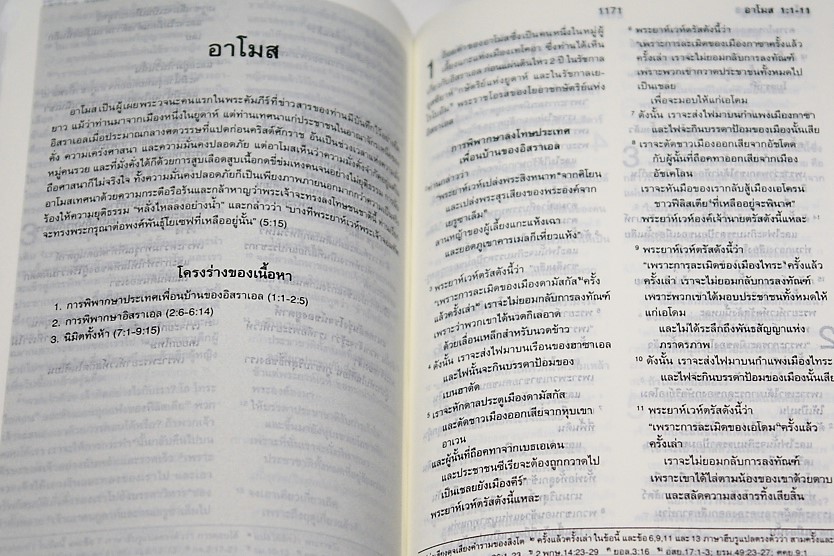 อาโมส
อาโมสเป็นผู้เผยพระวจนะคนแรกในพระคัมภีร์ที่ข่าวสารของท่านมีบันทึกไว้อย่าง
ยาว แม้ว่าท่านมาจากเมืองหนึ่งในยูดาห์ แต่ท่านเทศนาแก่ประชาชนในอาณาจักร
อิสราเอลเมื่อประมาณกลางศตวรรษที่แปดก่อนคริสต์ศักราช อันเป็นช่วงเวลาแห่งความมั่ง
คั่ง ความเคร่งศาสนา และความมั่นคงปลอดภัย แต่อาโมสเห็นว่าความมั่งคั่งจำกัด
หมู่คนรวย และที่มั่งคั่งได้ก็ด้วยการสูบเลือดสูบเนื้อกดขี่ข่มเหงคนจนอย่างไม่ยุติธรรม
ถือศาสนาก็ไม่จริงใจ ทั้งความมั่นคงปลอดภัยก็เป็นเพียงภาพภายนอกมากกว่าความ
อาโมสเทศนาด้วยความกระตือรือร้นและกล้าหาญว่าพระเจ้าจะทรงลงโทษชนชาตินี้
ร้องให้ความยุติธรรม “หลั่งไหลลงอย่างน้ำ” และกล่าวว่า “บางทีพระยาห์เวห์พระเจ้า
จะทรงพระกรุณาต่อพงศ์พันธุ์โยเซฟที่เหลืออยู่นั้น” (5:15)
โครงร่างของเนื้อหา
1. การพิพากษาประเทศเพื่อนบ้านของอิสราเอล (1:1-2:5)
2. การพิพากษาอิสราเอล (2:6-6:14)
3. นิมิตทั้งห้า (7:1-9:15)
1171
อาโมส 1:1-11
1 ถ้อยคำของอาโมสซึ่งเป็นคนหนึ่งในหมู่ผู้
เลี้ยงแกะแห่งเมืองเทโคอา ซึ่งท่านได้เห็น
เกี่ยวกับอิสราเอล ก่อนแผ่นดินไหว 2 ปี ในรัชกาล
กษัตริย์แห่งยูดาห์ และในรัชกาลเย-
พระราชโอรสของโยอาชกษัตริย์แห่ง
การพิพากษาลงโทษประเทศ
เพื่อนบ้านของอิสราเอล
ท่านกล่าวว่า
“พระยาห์เวห์เปล่งพระสิงหนาท จากศิโยน
และเปล่งพระสุรเสียงของพระองค์จาก
เยรูซาเล็ม
ลานหญ้าของผู้เลี้ยงแกะแห้งเฉา
และยอดภูเขาคารเมลก็เหี่ยวแห้ง”
3 พระยาห์เวห์ตรัสดังนี้ว่า
“เพราะการละเมิดของเมืองดามัสกัส ครั้ง
แล้วครั้งเล่า เราจะไม่ยอมกลับการลงทัณฑ์
เพราะว่าพวกเขาได้นวดกิเลอาด
ด้วยเลื่อนเหล็กสำหรับนวดข้าว
4 ดังนั้น เราจะส่งไฟมาบนเรือนของฮาซาเอล
และไฟนั้นจะกินบรรดาป้อมของ
เบนฮาดัด
5 เราจะหักดาลประตูเมืองดามัสกัส
และตัดชาวเมืองออกเสียจากหุบเขา
อาเวน
และผู้นั้นที่ถือคทาจากเบธเอเดน
และประชาชนซีเรียจะต้องถูกกวาดไป
เป็นเชลยยังเมืองคีร์”
พระยาห์เวห์ตรัสดังนี้แหละ
6 พระยาห์เวห์ตรัสดังนี้ว่า
“เพราะการละเมิดของเมืองกาซาครั้งแล้ว
ครั้งเล่า เราจะไม่ยอมกลับการลงทัณฑ์
เพราะพวกเขากวาดประชาชนทั้งหมดไป
เป็นเชลย
เพื่อจะมอบให้แก่เอโดม
7 ดังนั้น เราจะส่งไฟมาบนกำแพงเมืองกาซา
และไฟจะกินบรรดาป้อมของเมืองนั้นเสีย
8 เราจะตัดชาวเมืองออกเสียจากอัชโดด
กับผู้นั้นที่ถือคทาออกเสียจากเมือง
อัชเคโลน
เราจะหันมือของเรากลับสู้เมืองเอโครน
ชาวฟีลิสเตียที่เหลืออยู่จะพินาศ”
พระยาห์เวห์องค์เจ้านายตรัสดังนี้แหละ
9 พระยาห์เวห์ตรัสดังนี้ว่า
“เพราะการละเมิดของเมืองไทระ ครั้งแล้ว
ครั้งเล่า เราจะไม่ยอมกลับการลงทัณฑ์
เพราะพวกเขาได้มอบประชาชนทั้งหมดให้
แก่เอโดม
และไม่ได้ระลึกถึงพันธสัญญาแห่ง
ภราดรภาพ
10 ดังนั้น เราจะส่งไฟมาบนกำแพงเมืองไทระ
และไฟจะกินบรรดาป้อมของเมืองนั้นเสีย
11 พระยาห์เวห์ตรัสดังนี้ว่า
“เพราะการละเมิดของเอโดม ครั้งแล้ว
ครั้งเล่า
เราจะไม่ยอมกลับการลงทัณฑ์
เพราะเขาได้ไล่ตามน้องของเขาด้วยดาบ
และสลัดความสงสารทิ้งเสียสิ้น
เสียงดุจเสียงคำรามของสิงโต ครั้งแล้วครั้งเล่า ในข้อนี้ และข้อ 6,9,11 และ 13 ภาษาฮีบรูแปลตรงตัวว่า สามครั้งและ
2 พกษ.14:23-29 ยอล.3:16 อสย.17:1-3; ยรม.49:23-27; ศคย.9:1